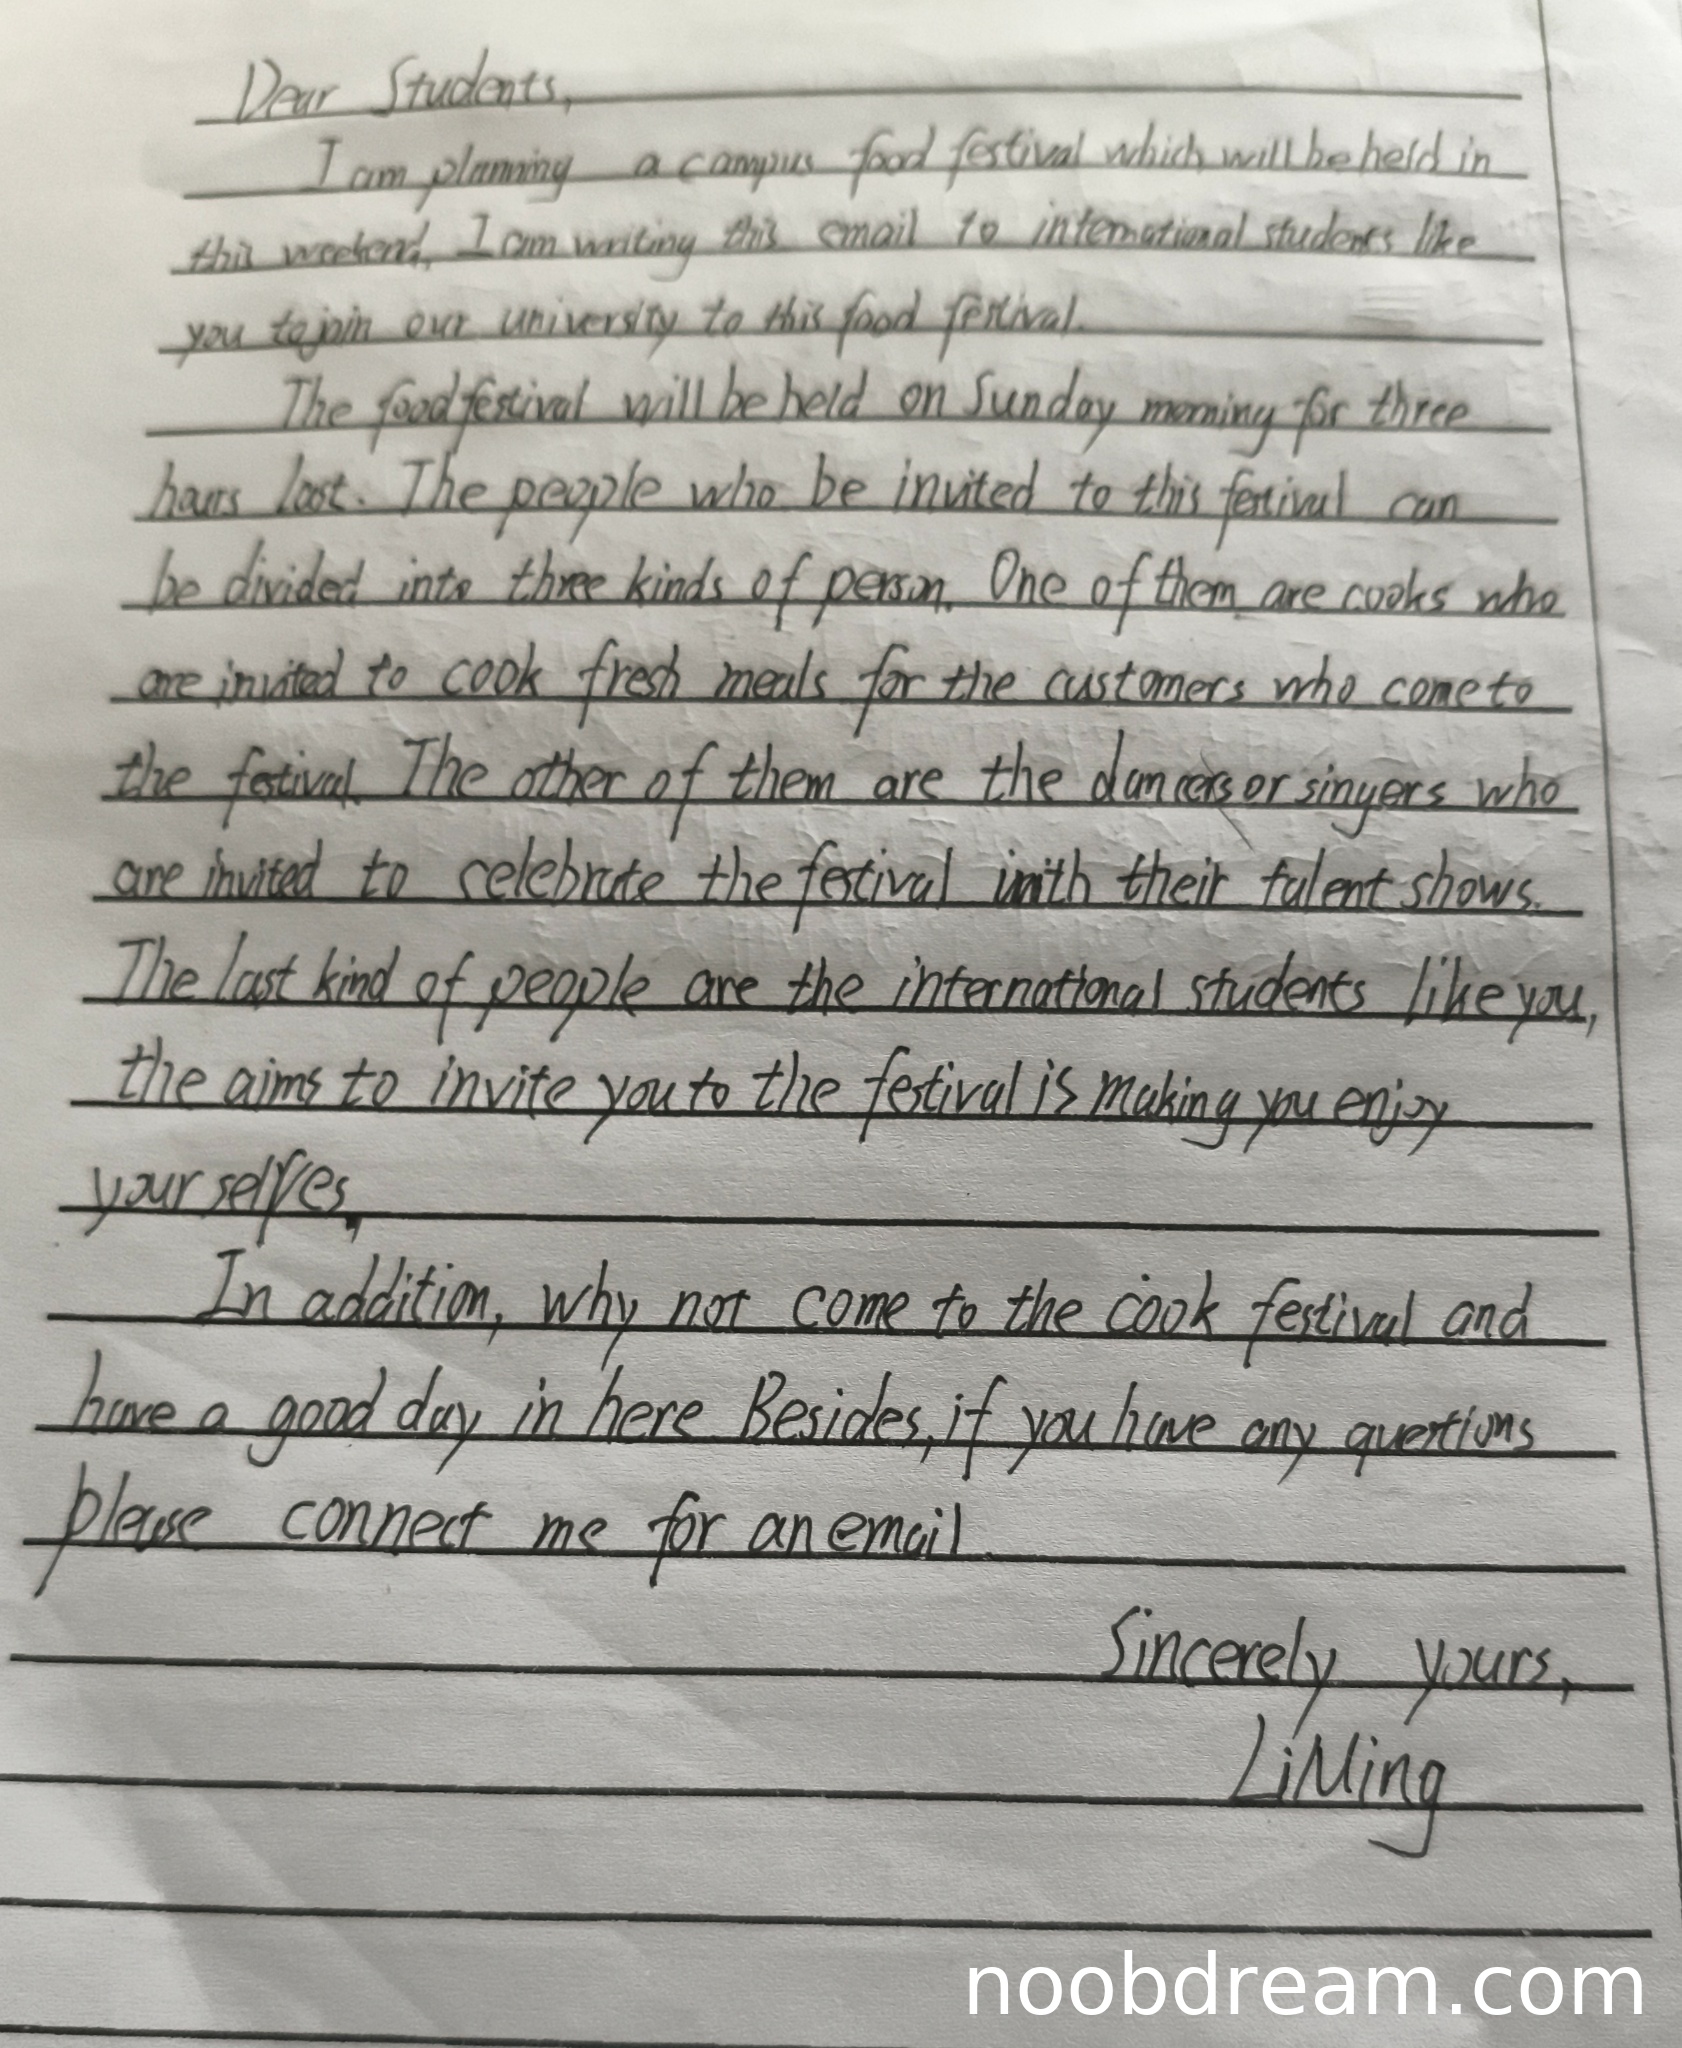 Dear Students,
I am planning a campus food festival which will be held in
this weekend, I am writing this email to international students like
you to join our university to this food festival.
The food festival will be held on Sunday morning for three
hours last. The people who be invited to this festival can
be divided into three kinds of person. One of them are cooks who
are invited to cook fresh meals for the customers who come to
the festival. The other of them are the dancers or singers who
are invited to celebrate the festival with their talent shows.
The last kind of people are the international students like you,
the aims to invite you to the festival is making you enjoy
your selves.
In addition, why not come to the cook festival and
have a good day in here. Besides, if you have any questions
please connect me for an email.
Sincerely yours,
LiMing
noobdream.com